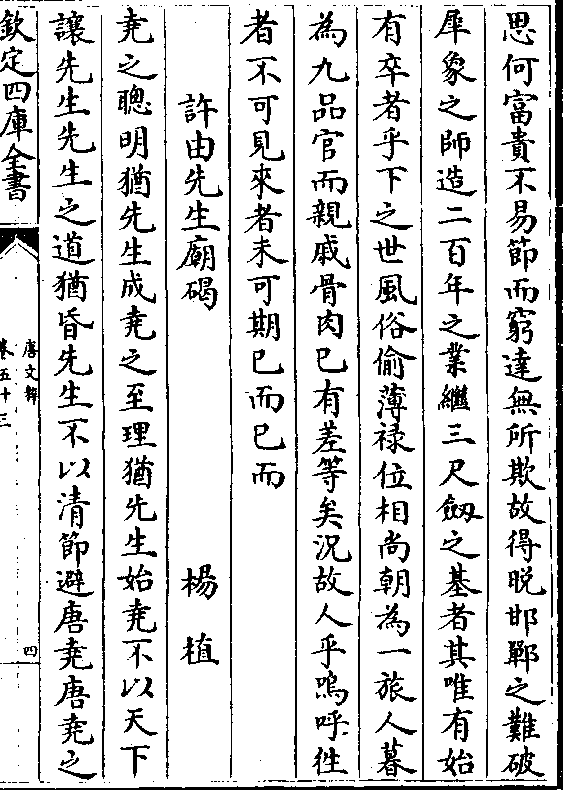 思何富貴不易節而窮達無所欺故得晚邯鄲之難破
犀象之師造二百年之業繼三尺劔之基者其唯有始
有卒者乎下之世風俗偷薄禄位相尚朝為一旅人暮
為九品官而親戚骨肉已有差等矣況故人乎嗚呼徃
者不可見來者未可期已而已而
許由先生廟碣 楊植
堯之聰明猶先生成堯之至理猶先生始堯不以天下
讓先生先生之道猶昏先生不以清節避唐堯唐堯之
欽定四庫全書
唐文粹
卷五十三
四